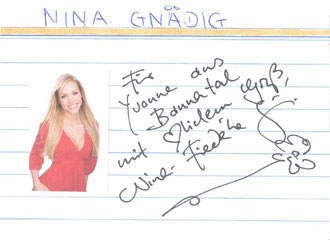 NINA GNÄDIG
Für
Yvonne aus
Bonnatal
mit lieben Gruß,
Nina-